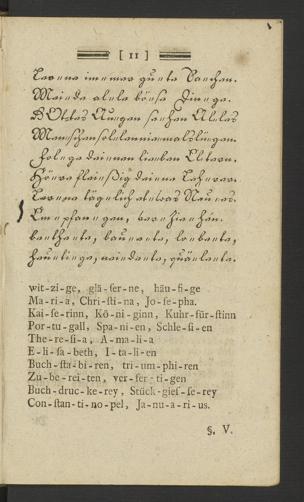 [ 11 ]
Ler=ne im=mer gu=te Sachen.
Mei=de al=le bö=se Din=ge.
Got=tes Au=gen se=hen Al=les
Men=schen sol=len nie=mals lügen.
Fol=ge dei=nen lie=ben El=tern.
Hö=re fleis=sig dei=ne Leh=rer.
Ler=ne täg=lich et=was Neu=es.
wit-zi-ge, glä-ser-ne, häu-fi-ge
Ma-ri-a, Chri-sti-na, Jo-se-pha.
Kai-se-rinn, Kö-ni-ginn, Kuhr-für-stinn
Por-tu-gall, Spa-ni-en, Schle-si-en
The-re-si-a, A-ma-li-a
E-li-sa-beth, I-ta-li-en
Buch-sta-bi-ren, tri-um-phi-ren
Zu-be-rei-ten, ver-fer-ti-gen
Buch-druc-ke-rey, Stück-gies-se-rey
Con-stan-ti-no-pel, Ja-nu-a-ri-us.
§. V.